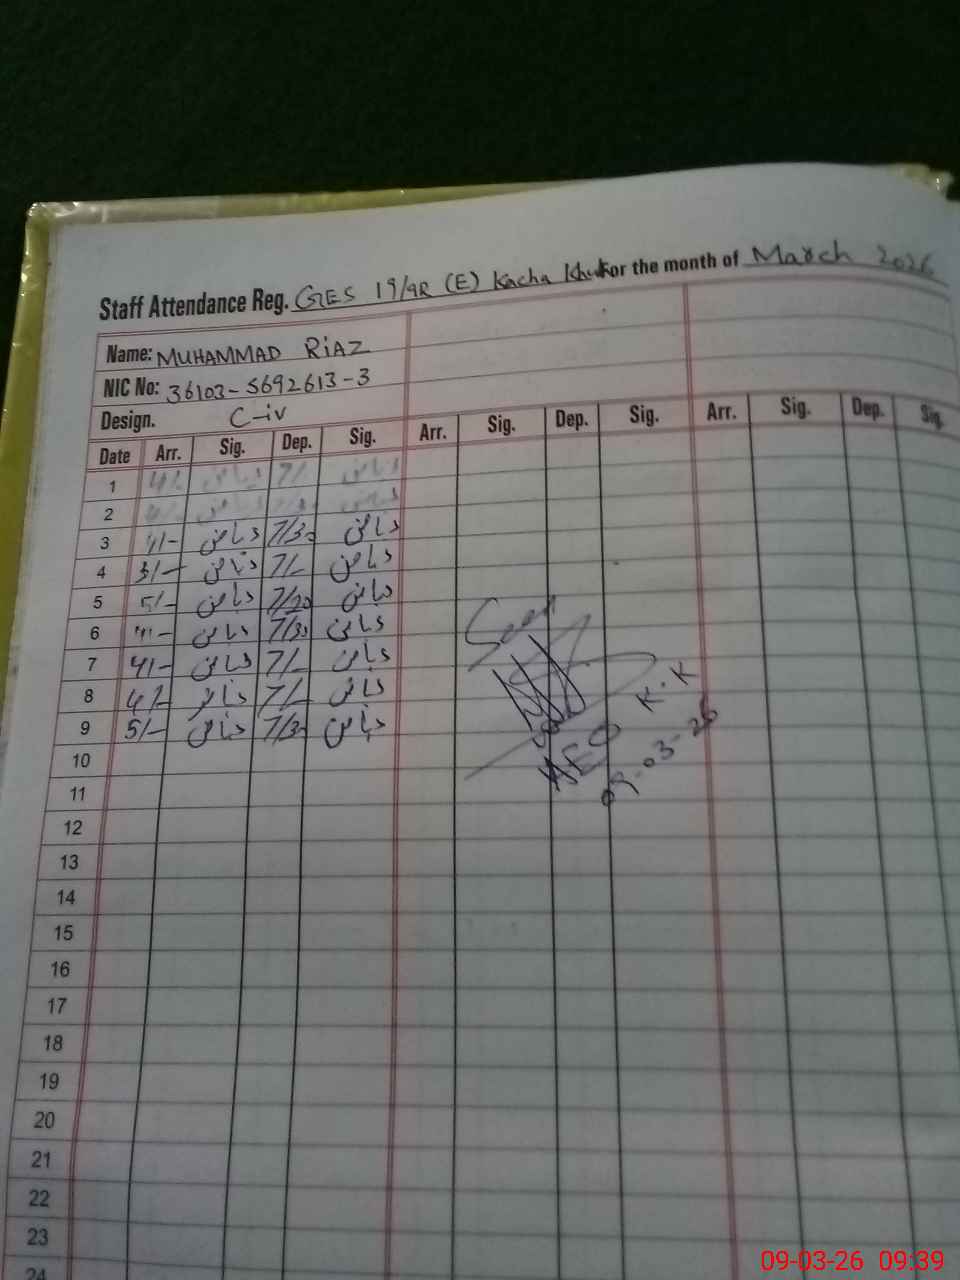 Staff Attendance Reg. GES 19/9R (E) Kacha Khu For the month of March 2026
Name: MUHAMMAD RIAZ
NIC No: 36103-5692613-3
Design. C-iv
Date Arr. Sig. Dep. Sig. Arr. Sig. Dep. Sig. Arr. Sig. Dep. Sig.
1 4/- ریاض 7/- ریاض
2 ریاض ریاض
3 4/- ریاض 7/30 ریاض
4 3/- ریاض 7/- ریاض
5 5/- ریاض 7/20 ریاض
6 4/- ریاض 7/30 ریاض
7 4/- ریاض 7/- ریاض
8 4/- ریاض 7/- ریاض
9 5/- ریاض 7/30 ریاض
Seen
AEO K.K
09-03-26
10
11
12
13
14
15
16
17
18
19
20
21
22
23
24
09-03-26 09:39